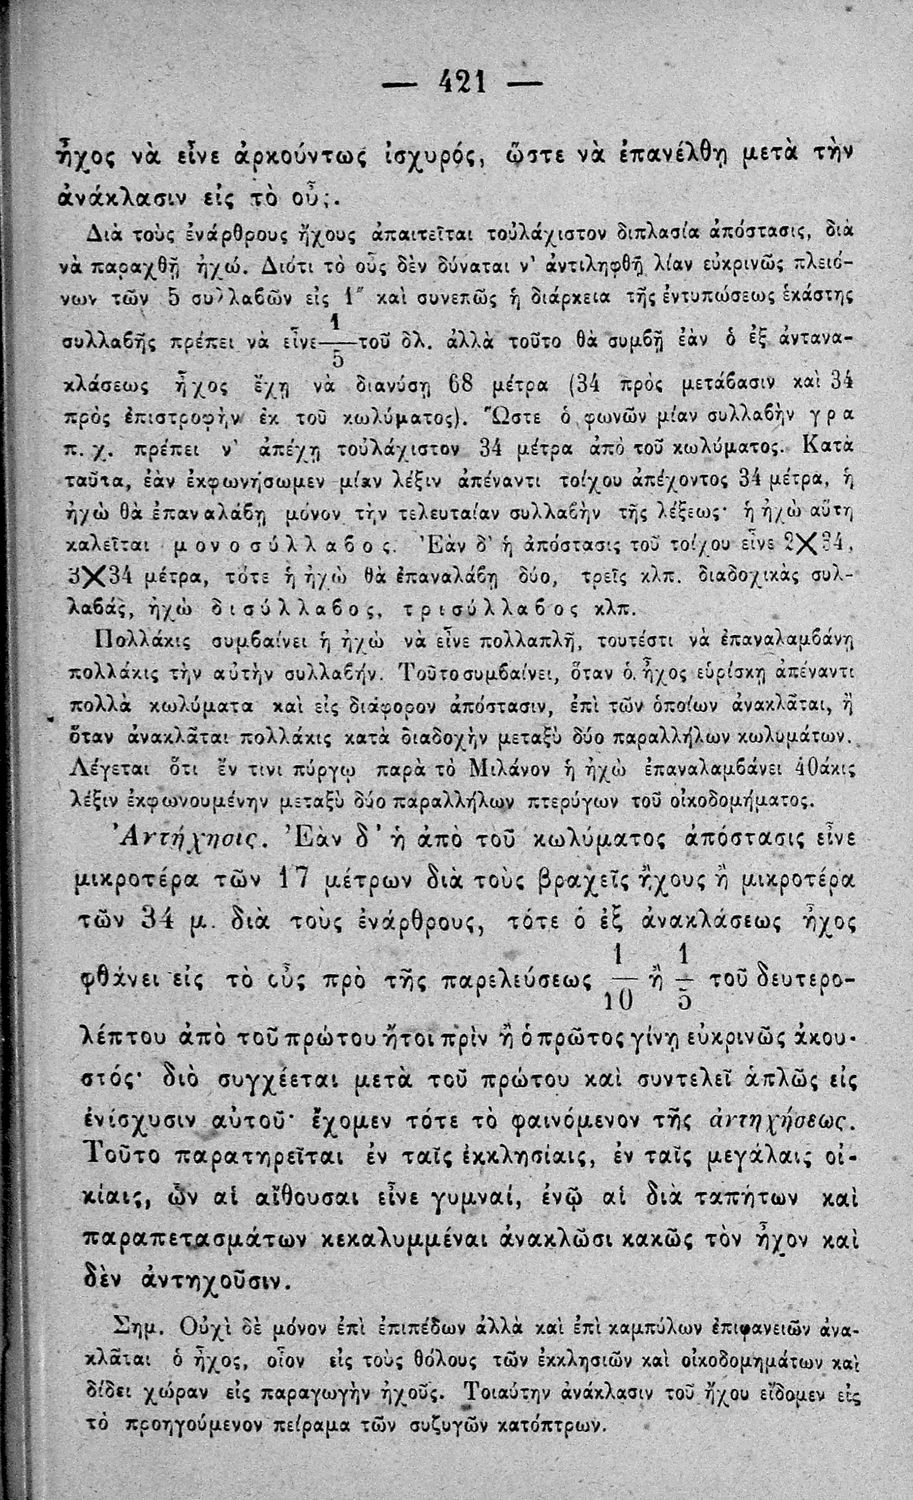 — 421 —
ἦχος νὰ εἶνε ἀρκούντως ἰσχυρός, ὥστε νὰ ἐπανέλθῃ μετὰ τὴν
ἀνάκλασιν εἰς τὸ οὖς.
Διὰ τοὺς ἐνάρθρους ἤχους ἀπαιτεῖται τοὐλάχιστον διπλασία ἀπόστασις, διὰ
νὰ παραχθῇ ἠχώ. Διότι τὸ οὖς δὲν δύναται ν' ἀντιληφθῇ λίαν εὐκρινῶς πλειό-
νων τῶν 5 συλλαβῶν εἰς 1″ καὶ συνεπῶς ἡ διάρκεια τῆς ἐντυπώσεως ἑκάστης
συλλαβῆς πρέπει νὰ εἶνε 1/5 τοῦ δλ. ἀλλὰ τοῦτο θὰ συμβῇ ἐὰν ὁ ἐξ ἀντανα-
κλάσεως ἦχος ἔχῃ νὰ διανύσῃ 68 μέτρα (34 πρὸς μετάβασιν καὶ 34
πρὸς ἐπιστροφὴν ἐκ τοῦ κωλύματος). Ὥστε ὁ φωνῶν μίαν συλλαβὴν γρα
π. χ. πρέπει ν' ἀπέχῃ τοὐλάχιστον 34 μέτρα ἀπὸ τοῦ κωλύματος. Κατὰ
ταῦτα, ἐὰν ἐκφωνήσωμεν μίαν λέξιν ἀπέναντι τοίχου ἀπέχοντος 34 μέτρα, ἡ
ἠχὼ θὰ ἐπαναλάβῃ μόνον τὴν τελευταίαν συλλαβὴν τῆς λέξεως· ἡ ἠχὼ αὕτη
καλεῖται μονοσύλλαβος. Ἐὰν δ' ἡ ἀπόστασις τοῦ τοίχου εἶνε 2×34,
3×34 μέτρα, τότε ἡ ἠχὼ θὰ ἐπαναλάβῃ δύο, τρεῖς κλπ. διαδοχικὰς συλ-
λαβάς, ἠχὼ δισύλλαβος, τρισύλλαβος κλπ.
Πολλάκις συμβαίνει ἡ ἠχὼ νὰ εἶνε πολλαπλῆ, τουτέστι νὰ ἐπαναλαμβάνῃ
πολλάκις τὴν αὐτὴν συλλαβήν. Τοῦτο συμβαίνει, ὅταν ὁ ἦχος εὑρίσκῃ ἀπέναντι
πολλὰ κωλύματα καὶ εἰς διάφορον ἀπόστασιν, ἐπὶ τῶν ὁποίων ἀνακλᾶται, ἢ
ὅταν ἀνακλᾶται πολλάκις κατὰ διαδοχὴν μεταξὺ δύο παραλλήλων κωλυμάτων.
Λέγεται ὅτι ἔν τινι πύργῳ παρὰ τὸ Μιλάνον ἡ ἠχὼ ἐπαναλαμβάνει 40άκις
λέξιν ἐκφωνουμένην μεταξὺ δύο παραλλήλων πτερύγων τοῦ οἰκοδομήματος.
Ἀντήχησις. Ἐὰν δ' ἡ ἀπὸ τοῦ κωλύματος ἀπόστασις εἶνε
μικροτέρα τῶν 17 μέτρων διὰ τοὺς βραχεῖς ἤχους ἢ μικροτέρα
τῶν 34 μ. διὰ τοὺς ἐνάρθρους, τότε ὁ ἐξ ἀνακλάσεως ἦχος
φθάνει εἰς τὸ οὖς πρὸ τῆς παρελεύσεως 1/10 ἢ 1/5 τοῦ δευτερο-
λέπτου ἀπὸ τοῦ πρώτου ἤτοι πρὶν ἢ ὁ πρῶτος γίνῃ εὐκρινῶς ἀκου-
στός· διὸ συγχέεται μετὰ τοῦ πρώτου καὶ συντελεῖ ἁπλῶς εἰς
ἐνίσχυσιν αὐτοῦ· ἔχομεν τότε τὸ φαινόμενον τῆς ἀντηχήσεως.
Τοῦτο παρατηρεῖται ἐν ταῖς ἐκκλησίαις, ἐν ταῖς μεγάλαις οἰ-
κίαις, ὧν αἱ αἴθουσαι εἶνε γυμναί, ἐνῷ αἱ διὰ ταπήτων καὶ
παραπετασμάτων κεκαλυμμέναι ἀνακλῶσι κακῶς τὸν ἦχον καὶ
δὲν ἀντηχοῦσιν.
Σημ. Οὐχὶ δὲ μόνον ἐπὶ ἐπιπέδων ἀλλὰ καὶ ἐπὶ καμπύλων ἐπιφανειῶν ἀνα-
κλᾶται ὁ ἦχος, οἷον εἰς τοὺς θόλους τῶν ἐκκλησιῶν καὶ οἰκοδομημάτων καὶ
δίδει χώραν εἰς παραγωγὴν ἠχοῦς. Τοιαύτην ἀνάκλασιν τοῦ ἤχου εἴδομεν εἰς
τὸ προηγούμενον πείραμα τῶν συζυγῶν κατόπτρων.